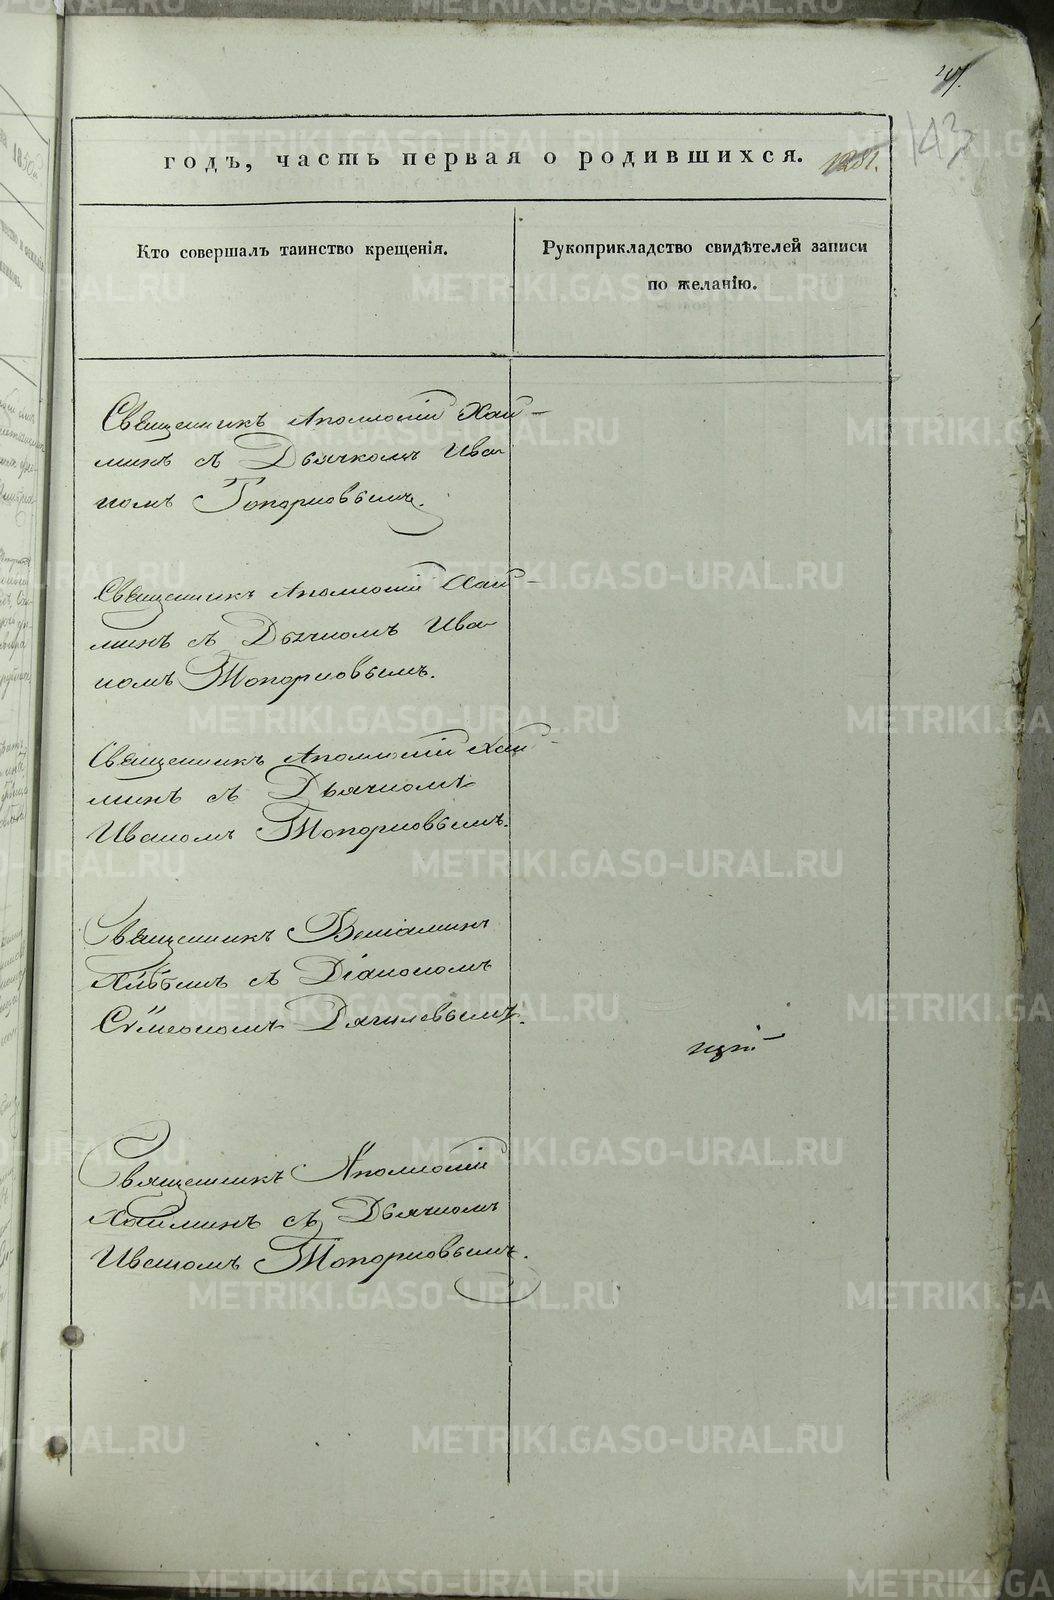 143
годъ, часть первая о родившихся. 1281.
Кто совершалъ таинство крещенія.
Рукоприкладство свидѣтелей записи
по желанію.
Священникъ Аполлосій Хай-
минъ съ Дьячкомъ Ива
номъ Топорковымъ.
Священникъ Аполлосій Хай-
минъ съ Дьячкомъ Ива
номъ Топорковымъ.
Священникъ Аполлосій Хай-
минъ съ Дьячкомъ
Иваномъ Топорковымъ.
Священникъ Веніаминъ
съ Діакономъ
Сѵмеономъ Дягилевымъ.
Священникъ Аполлосій
Хайминъ съ Дьячкомъ
Иваномъ Топорковымъ.
METRIKI.GASO-URAL.RU